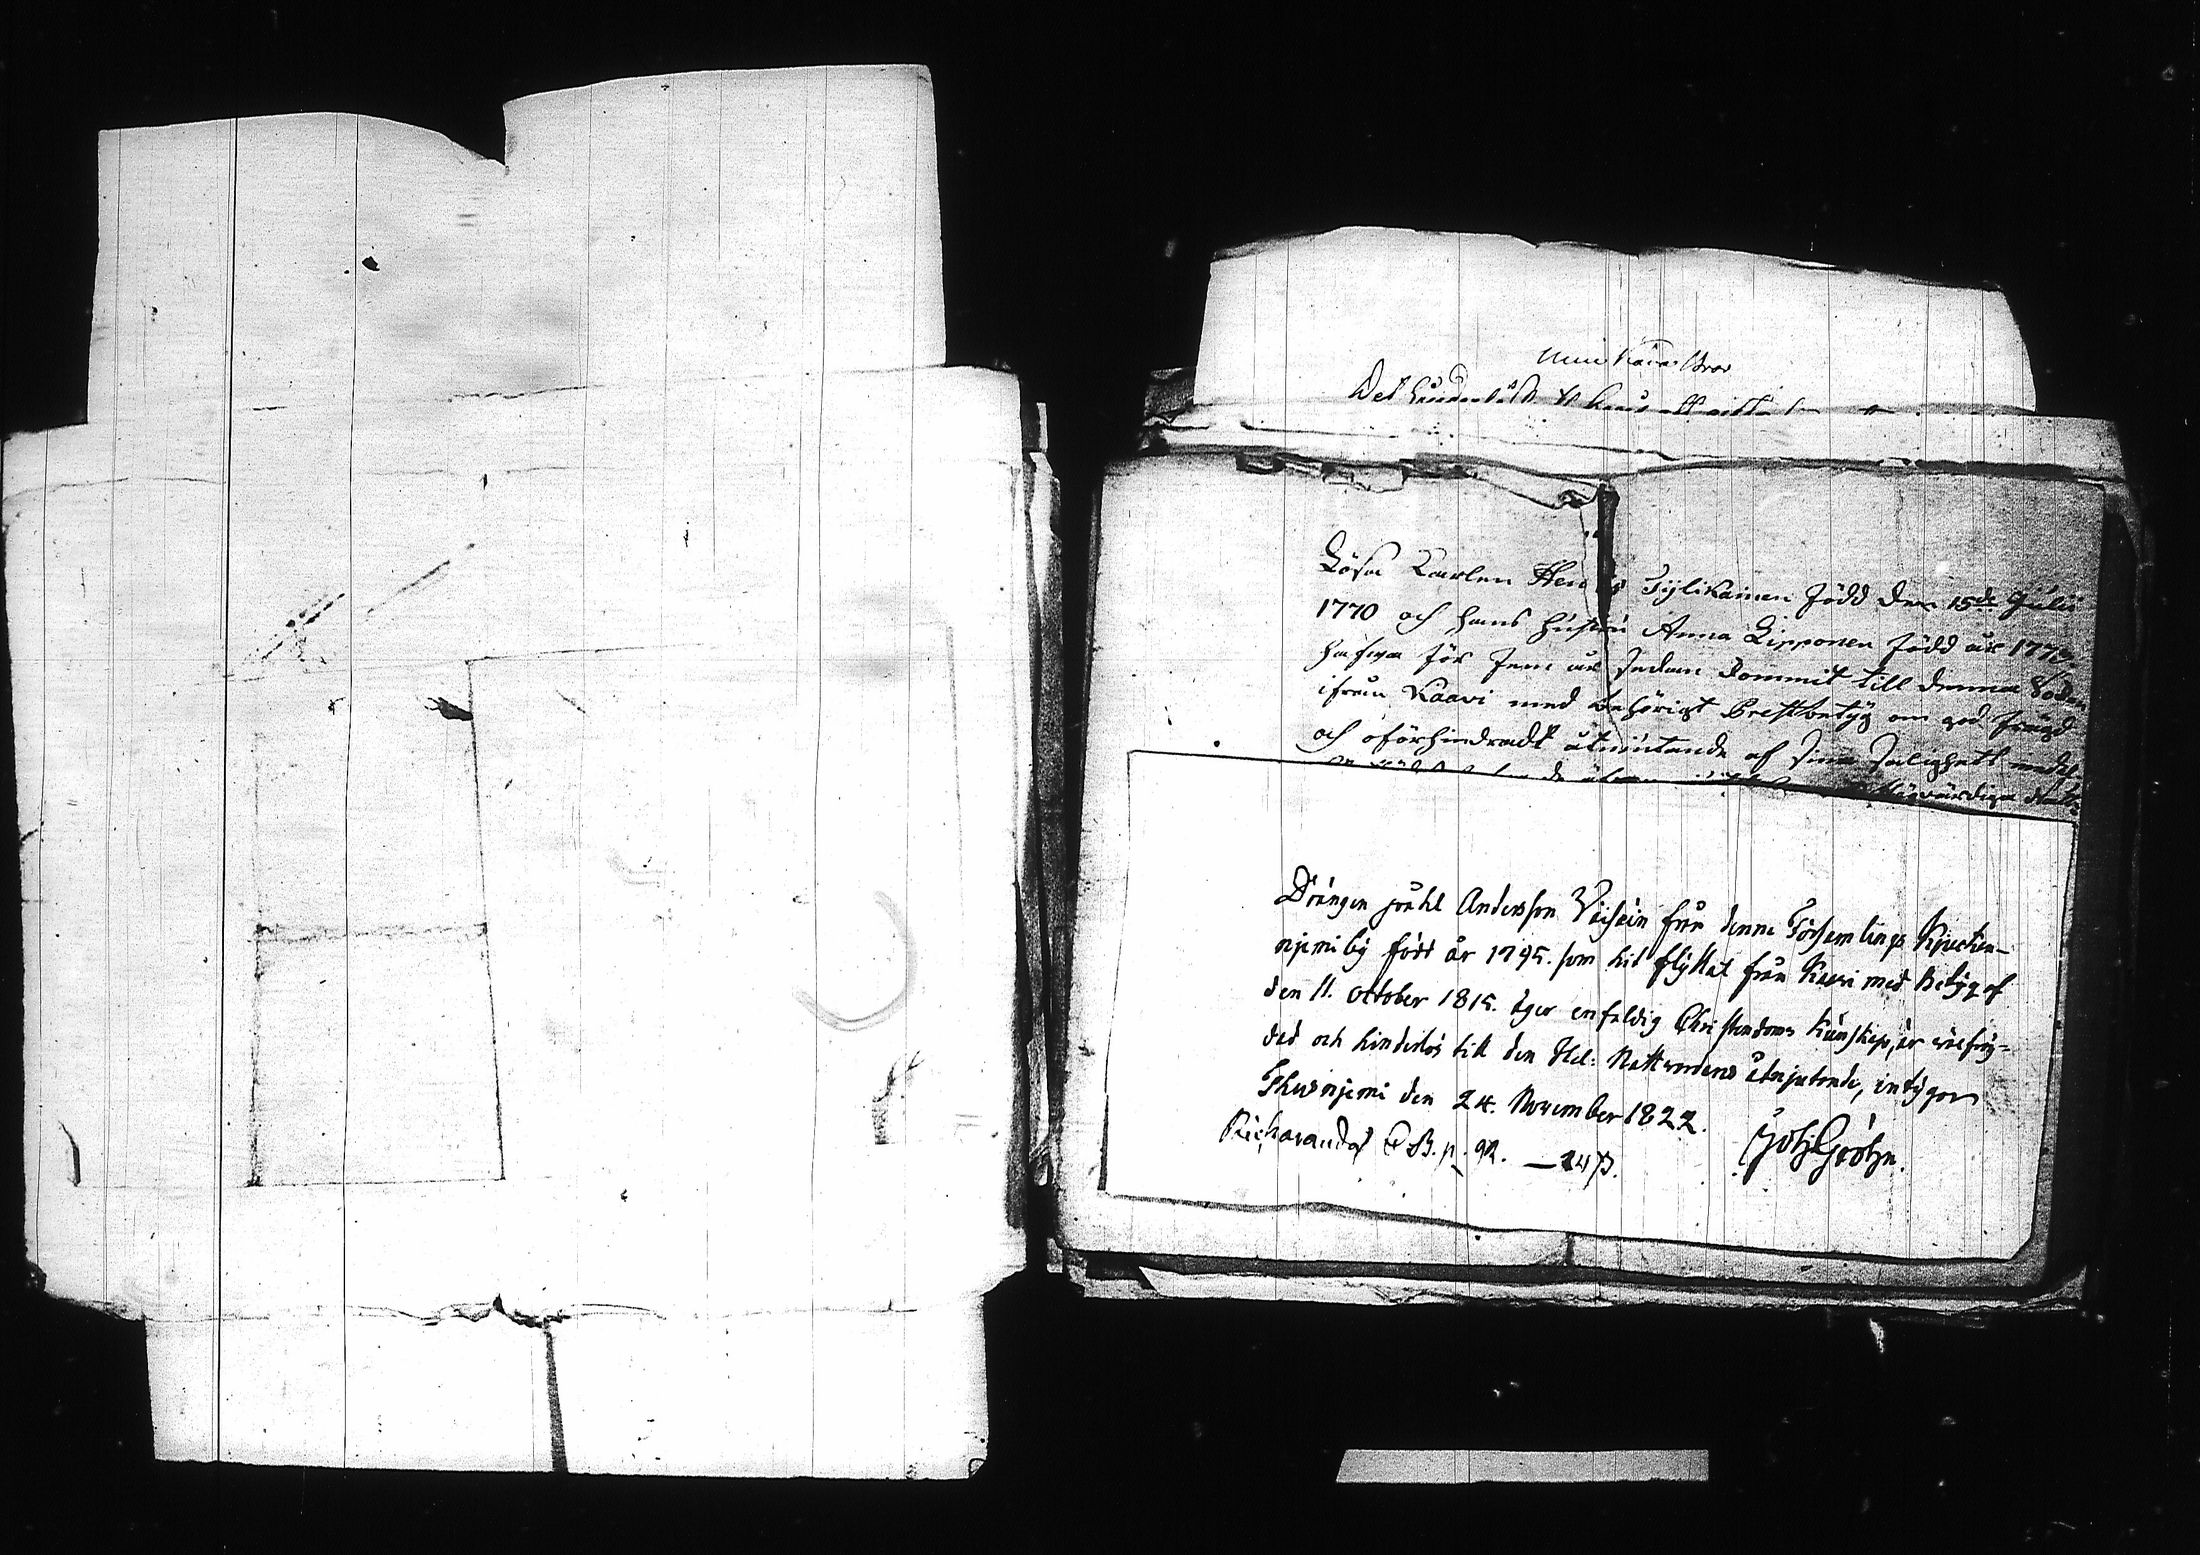 Min Käre Bror
Det
Lösa Karlen Hen Tylikainen född den 15de Julii
1770 och hans hustru Anna Lipponen född år 1773
hafva för fem år sedan kommit till denna
ifrån Kaavi med behörigt Prestbetyg om god frägd
och oförhindradt åtniutande af sina Salighets medel
Drängen påhl Andersson Väisäin från denne Församlings
niemi by född år 1795. som hit flyttat från Kavi med Betyg af
den 11. october 1815. äger enfaldig Christendoms Kunskap, är väl fräg-
dad och hinderlös till den Hel: Nattvardens åtnjutande, intygar
Thusniemi den 24. November 1822. Joh Gröhn.
C B. p. 92. — 247.